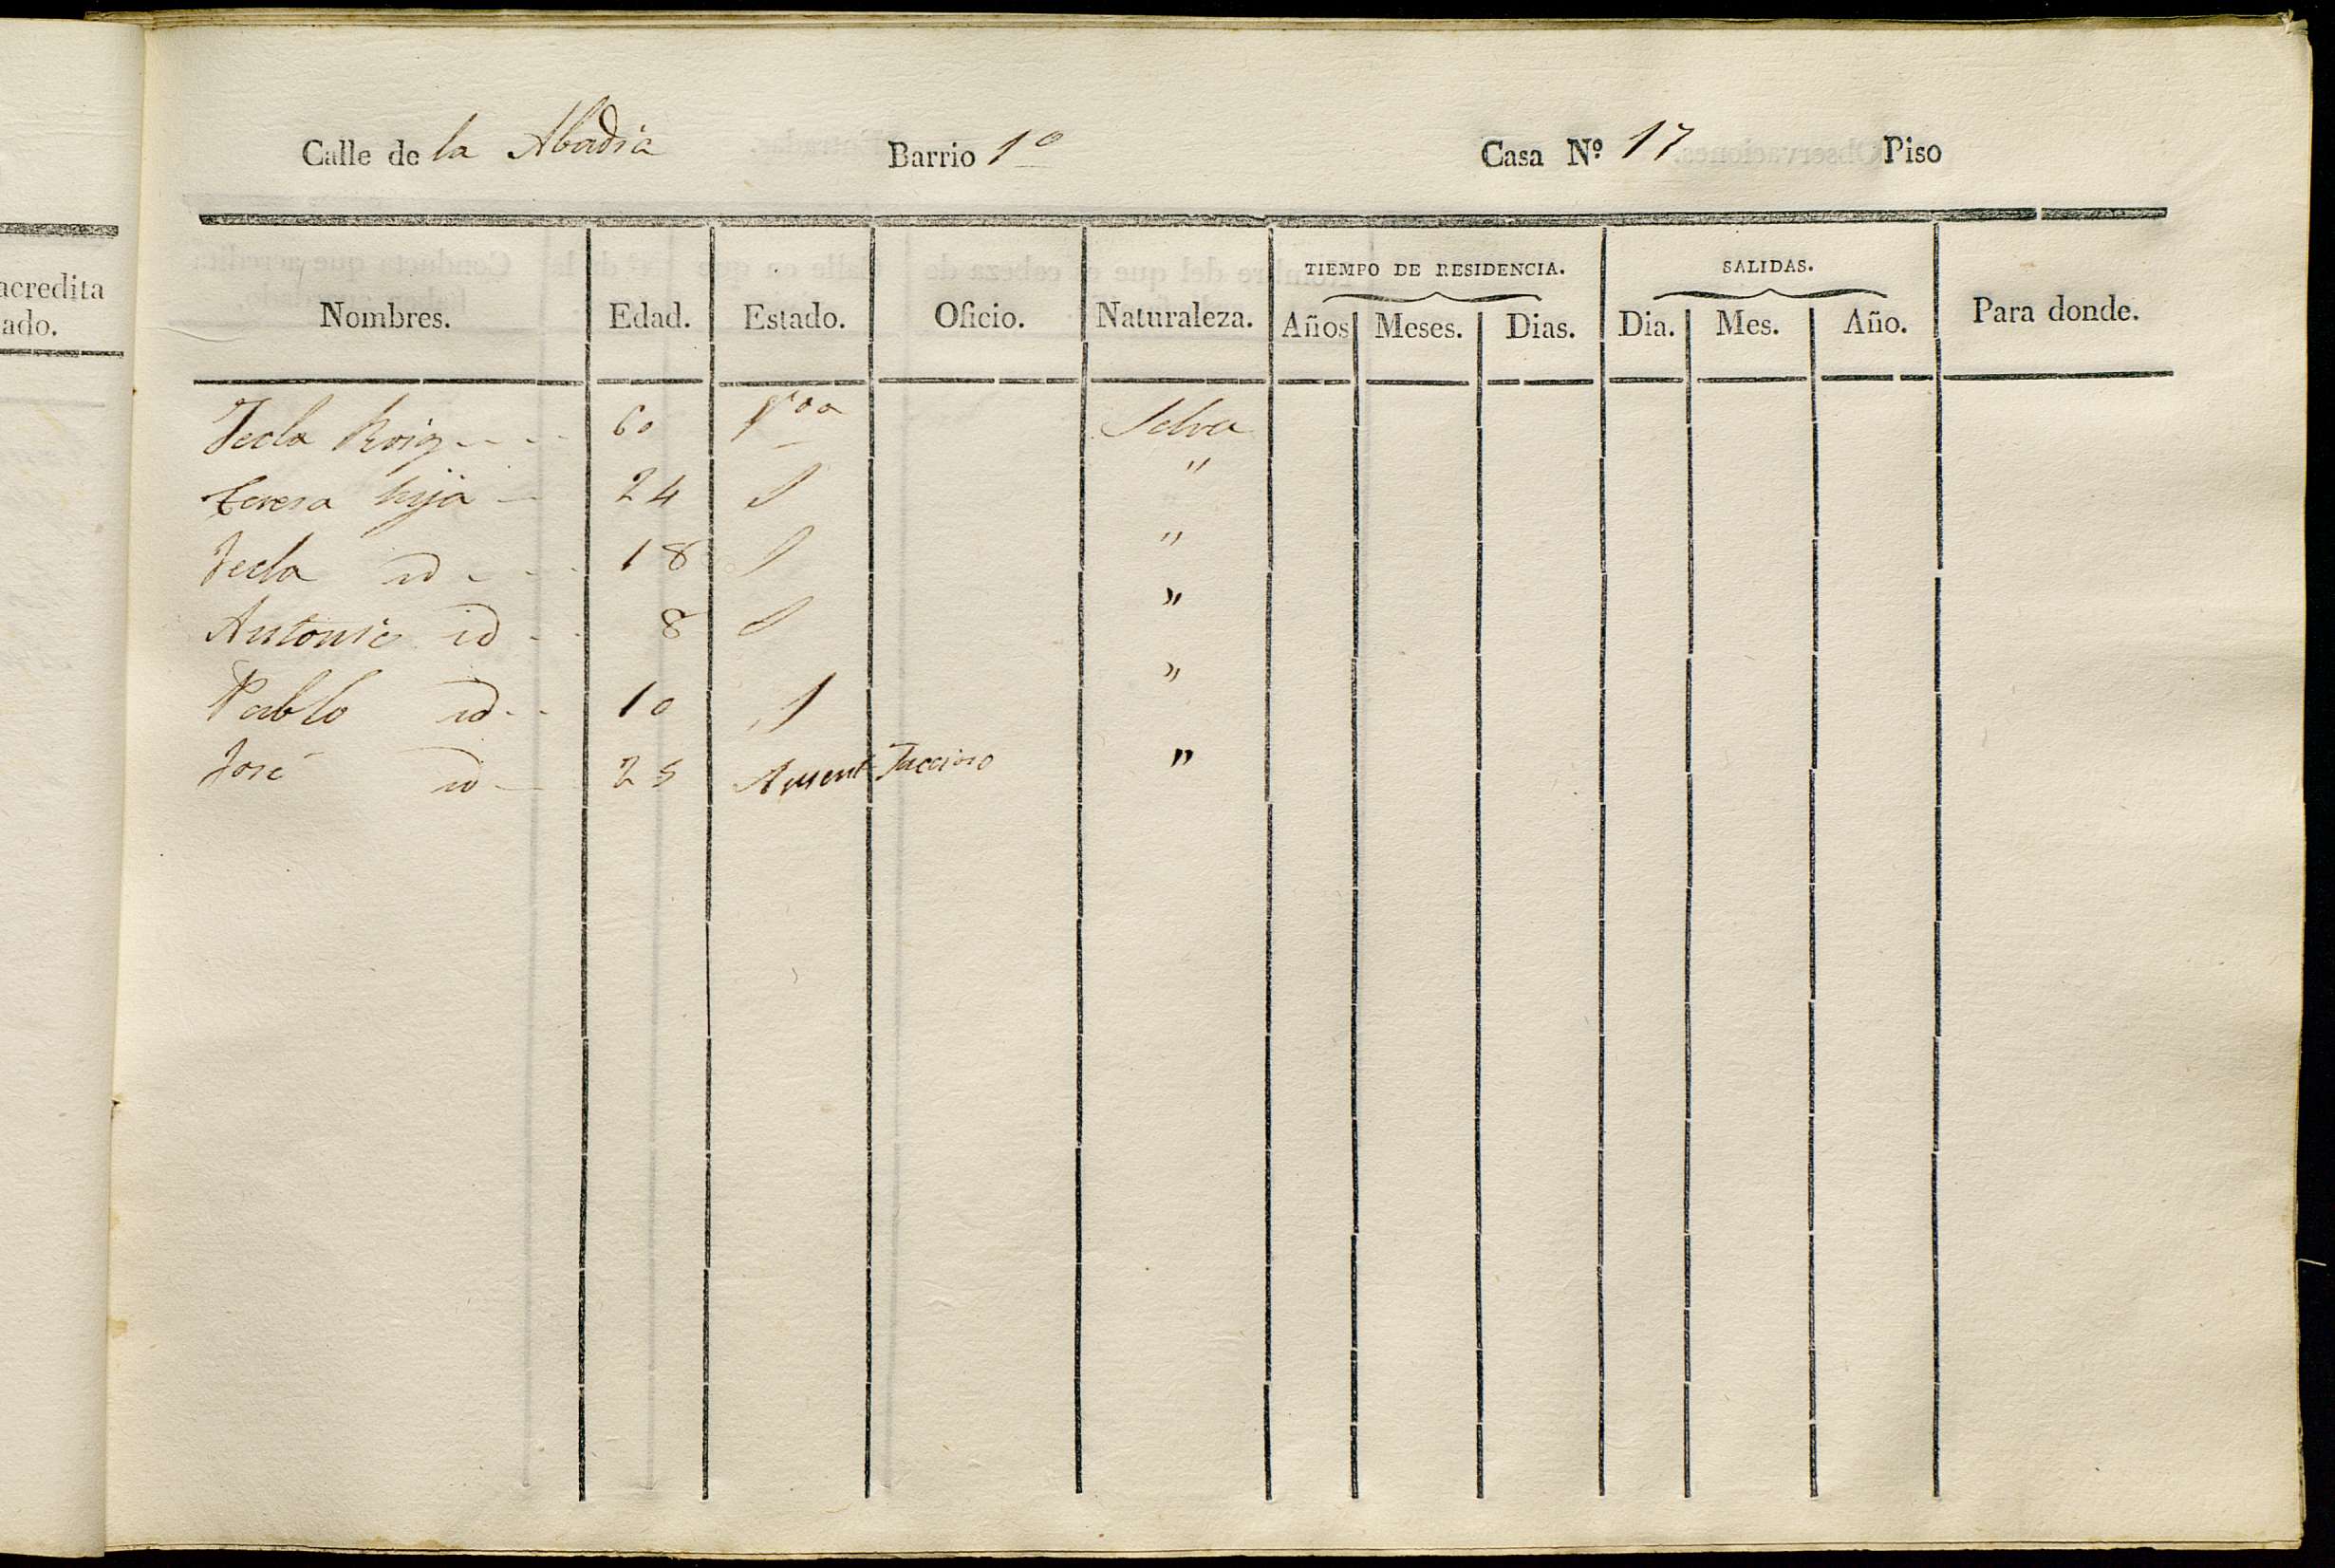 acredita
ado.
Calle de la Abadia Barrio 1º Casa Nº 17 Piso
TIEMPO DE RESIDENCIA. SALIDAS.
Nombres. Edad. Estado. Oficio. Naturaleza. Años Meses. Dias. Dia. Mes. Año. Para donde.
Tecla Roig 60 Vda Selva
Teresa hija 24 S "
Tecla id 18 S "
Antonio id 8 S "
Pablo id 10 S "
José id 25 Ausent Faccioso "